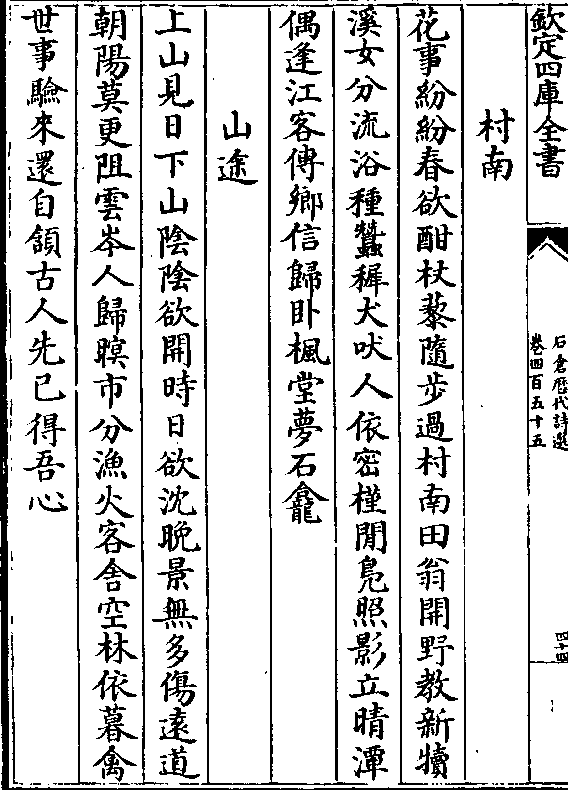 欽定四庫全書
石倉歴代詩選
卷四百五十五
四十四
村南
花事紛紛春欲酣杖藜隨步過村南田翁開野教新犢
溪女分流浴種蠶穉犬吠人依密槿閒鳬照影立晴潭
偶逢江客傳鄉信歸卧楓堂夢石龕
山途
上山見日下山陰陰欲開時日欲沈晚景無多傷遠道
朝陽莫更阻雲岑人歸暝市分漁火客舍空林依暮禽
世事驗來還自頷古人先已得吾心